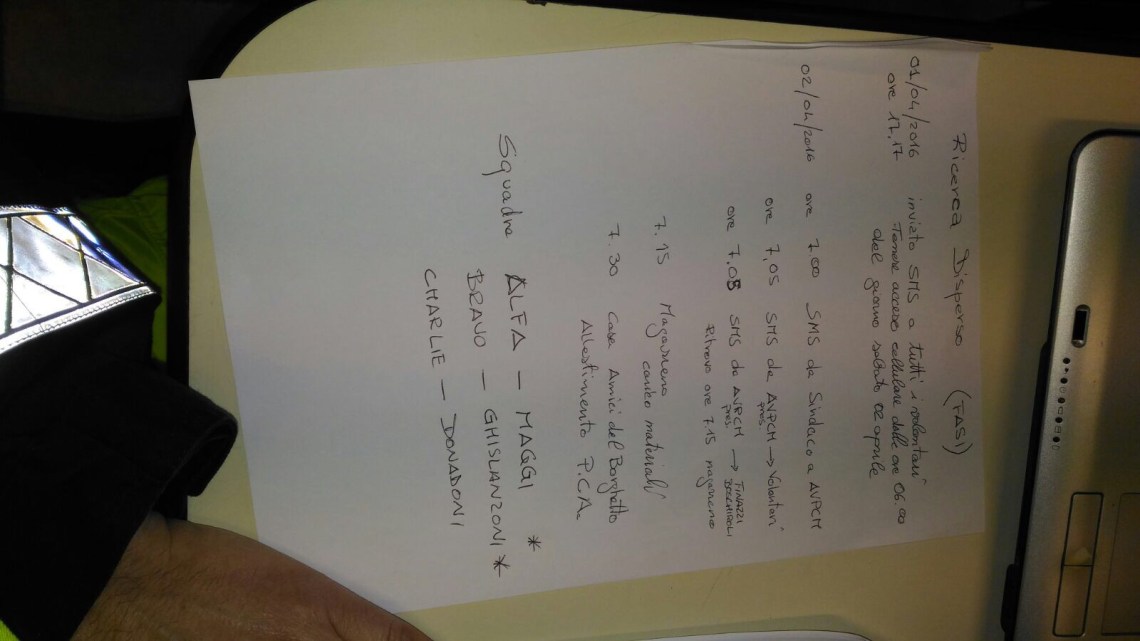 Ricerca Disperso (FASI)
01/04/2016 inviato SMS a tutti i volontari
ore 17,17 Tenere acceso cellulare dalle ore 06.00
del giorno sabato 02 aprile
02/04/2016 ore 7.00 SMS da Sindaco a AVPCM
ore 7,05 SMS da AVPCM → Volontari
pres.
ore 7,08 SMS da AVPCM → FINAZZI
pres.
Ritrovo ore 7.15 magazzeno
7.15 Magazzeno
carico materiali
7.30 Casa Amici del Borghetto
Allestimento P.C.A.
Squadre ALFA — MAGGI *
BRAVO — GHISLANZONI *
CHARLIE — DONADONI